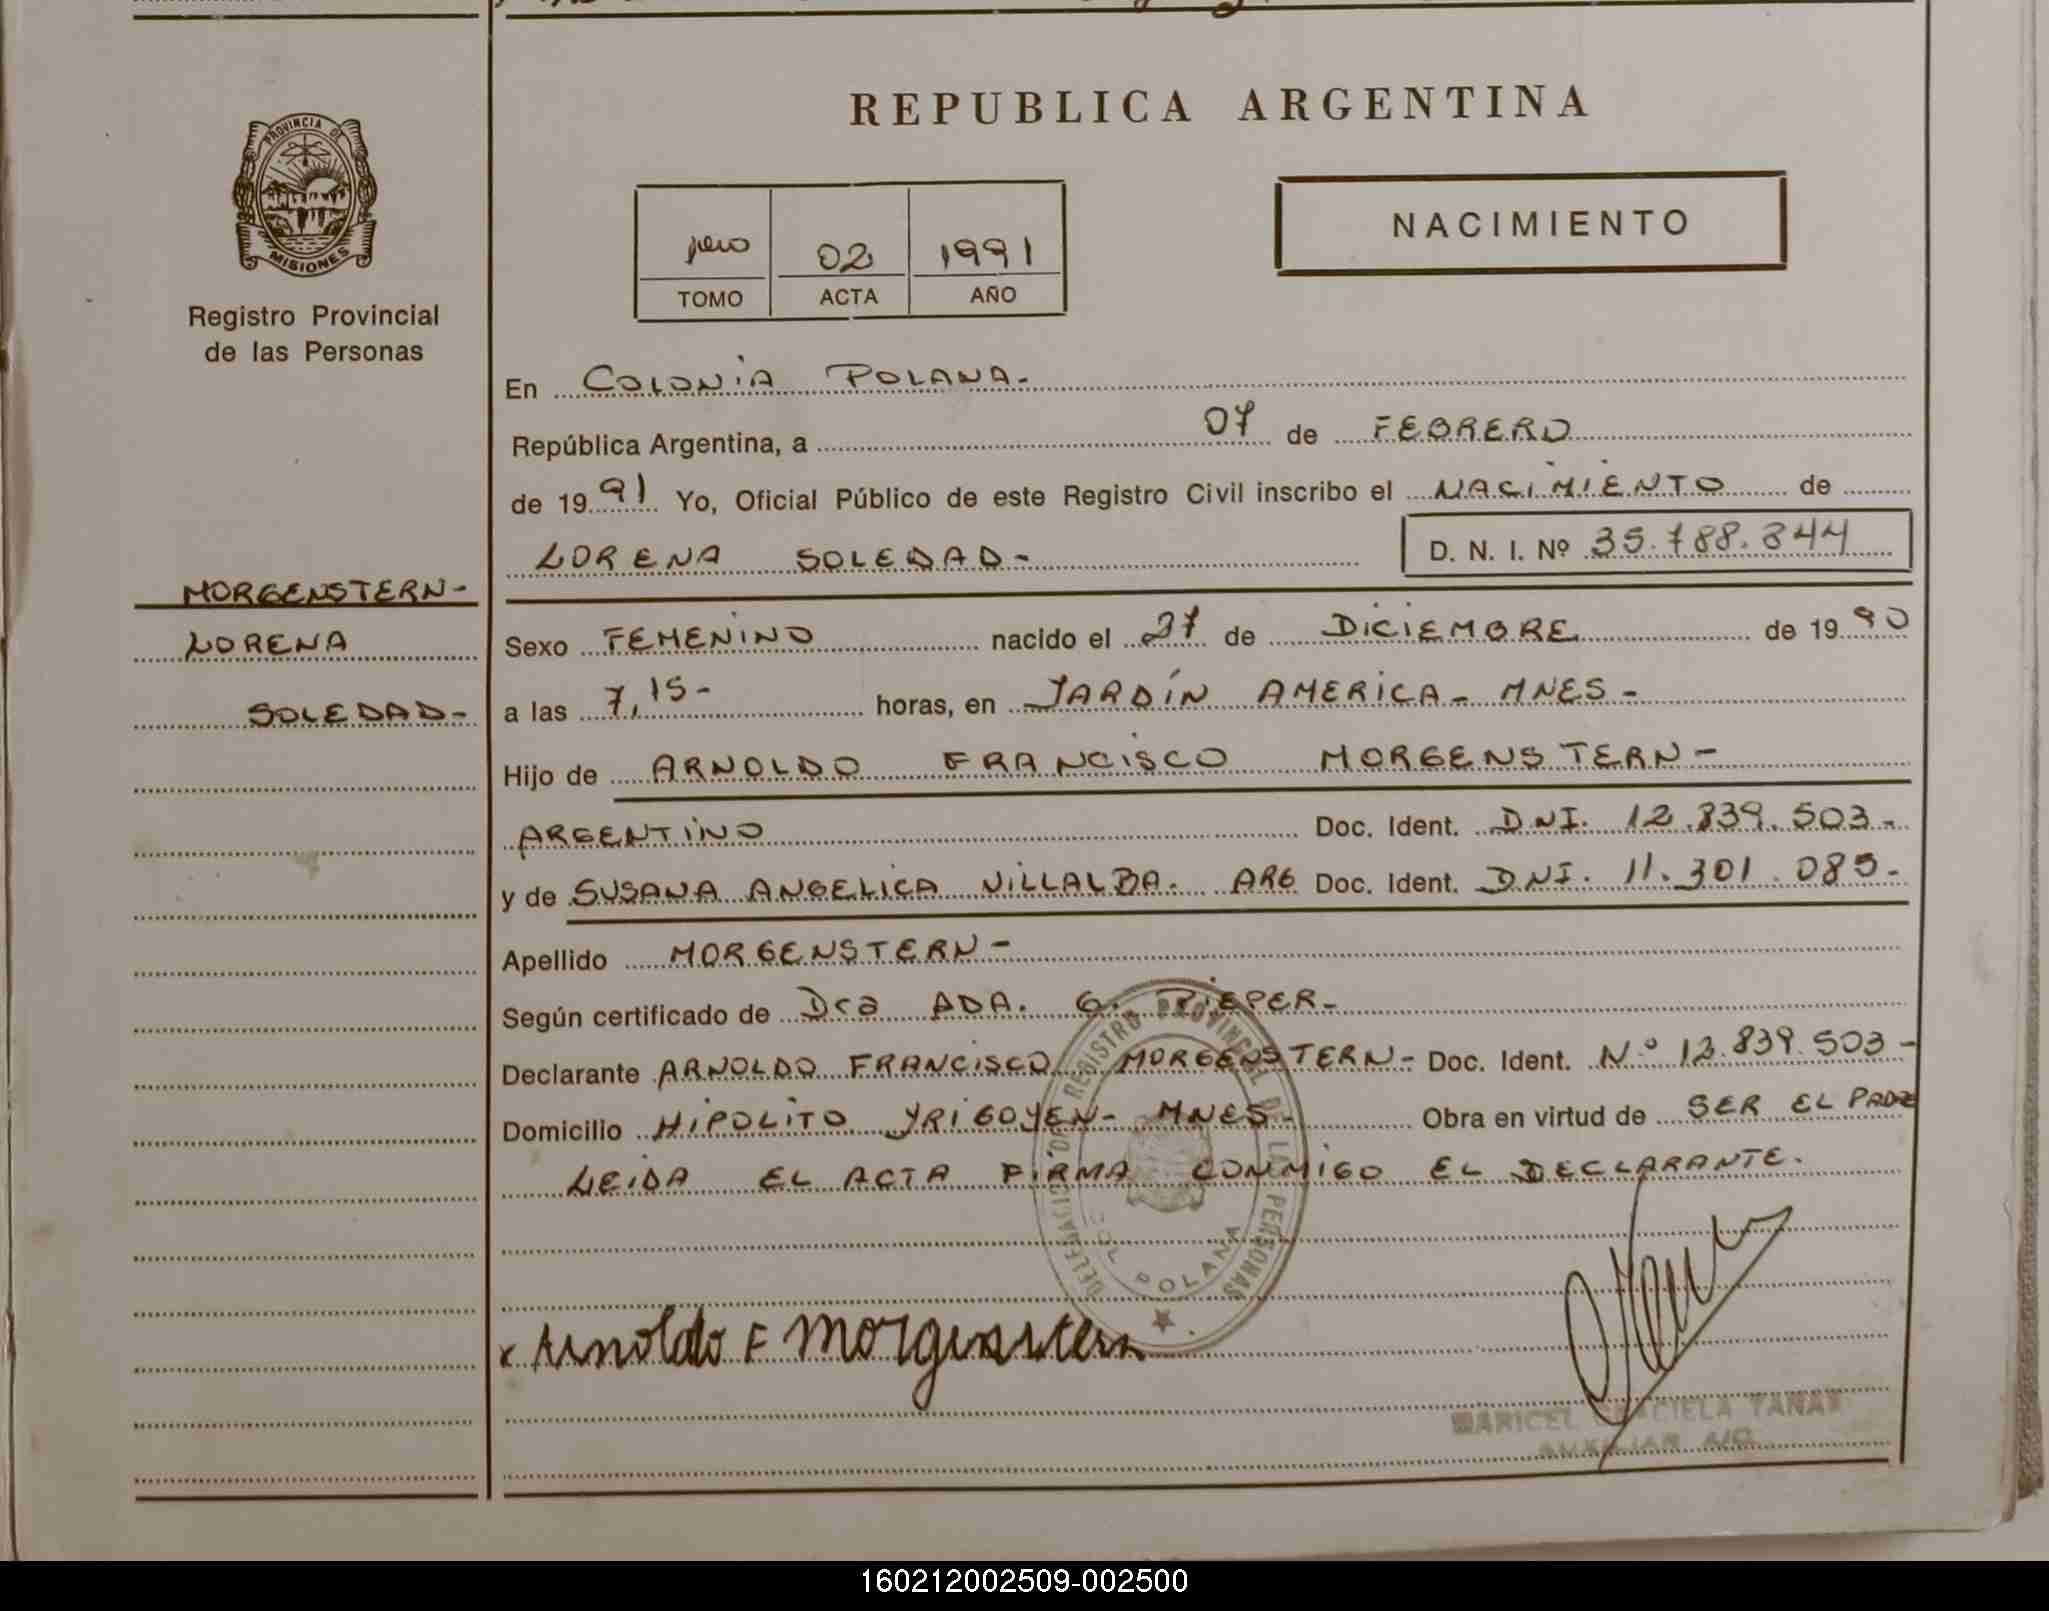 REPUBLICA ARGENTINA
PROVINCIA DE
MISIONES
Registro Provincial
de las Personas
NACIMIENTO
02 1991
TOMO ACTA AÑO
En COLONIA POLANA-
República Argentina, a 07 de FEBRERO
de 1991 Yo, Oficial Público de este Registro Civil inscribo el NACIMIENTO de
LORENA SOLEDAD- D. N. I. Nº 35.788.844
MORGENSTERN-
LORENA
SOLEDAD-
Sexo FEMENINO nacido el 27 de DICIEMBRE de 1990
a las 7,15- horas, en JARDIN AMERICA- MNES-
Hijo de ARNOLDO FRANCISCO MORGENSTERN-
ARGENTINO Doc. Ident. DNI. 12.839.503-
y de SUSANA ANGELICA VILLALBA. ARG Doc. Ident. DNI. 11.301.085-
Apellido MORGENSTERN-
Según certificado de Dra ADA. G. PIEPER-
Declarante ARNOLDO FRANCISCO MORGENSTERN- Doc. Ident. N.º 12.839.503-
Domicilio HIPOLITO YRIGOYEN- MNES- Obra en virtud de SER EL PADRE
LEIDA EL ACTA FIRMA CONMIGO EL DECLARANTE.
DELEGACION REGISTRO PROVINCIAL DE LAS PERSONAS
COL POLANA
x Arnoldo F Morgenstern
MARICEL GRACIELA
AUXILIAR
160212002509-002500